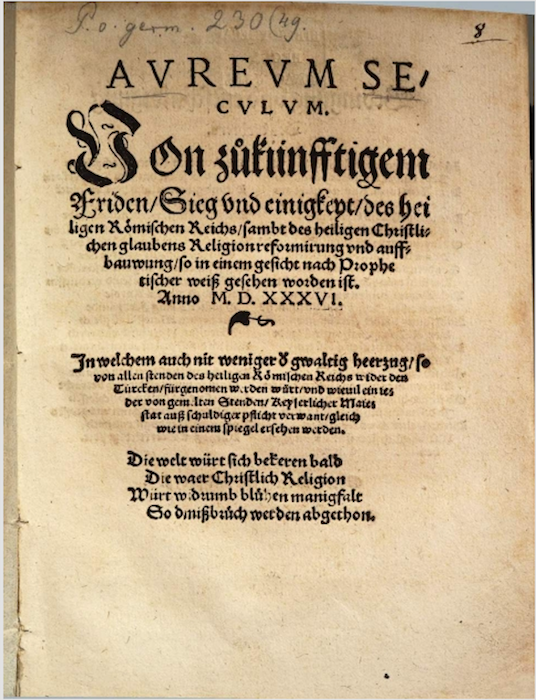 P. o. germ. 230 (49.
8
AVREVM SE/
CVLVM.
VOn zůkünfftigem
Friden/Sieg vnd einigkeyt/des hei
ligen Römischen Reichs/sambt des heiligen Christli-
chen glaubens Religion reformirung vnd auff-
bauwung/so in einem gesicht nach Prophe
tischer weiß gesehen worden ist.
Anno M. D. XXXVI.
In welchem auch nit weniger d̕ gwaltig heerzug/so
von allen stenden des heiligen Römischen Reichs wider den
Türcken/fürgenomen werden würt/vnd wieuil ein ies
der von gemelten Stenden/Keyserlicher Maies
stat auß schuldiger pflicht verwant/gleich
wie in einem spiegel ersehen werden.
Die welt würt sich bekeren bald
Die waer Christlich Religion
Würt widrumb blühen manigfalt
So d mißbrüch werden abgethon.